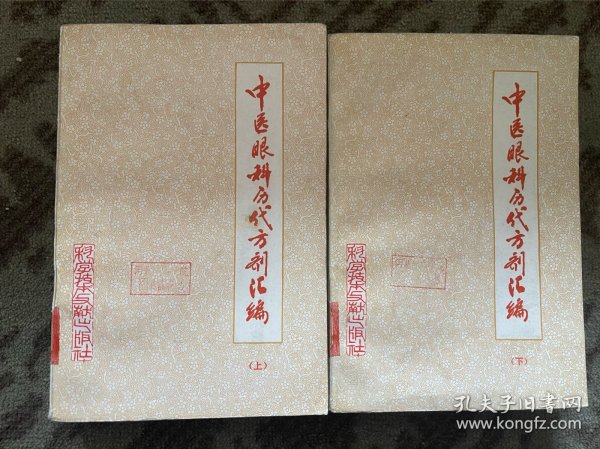 中医眼科历代方剂汇编
(上)
科学技术文献出版社
中医眼科历代方剂汇编
(下)
科学技术文献出版社
孔夫子旧书网
www.kongfz.com